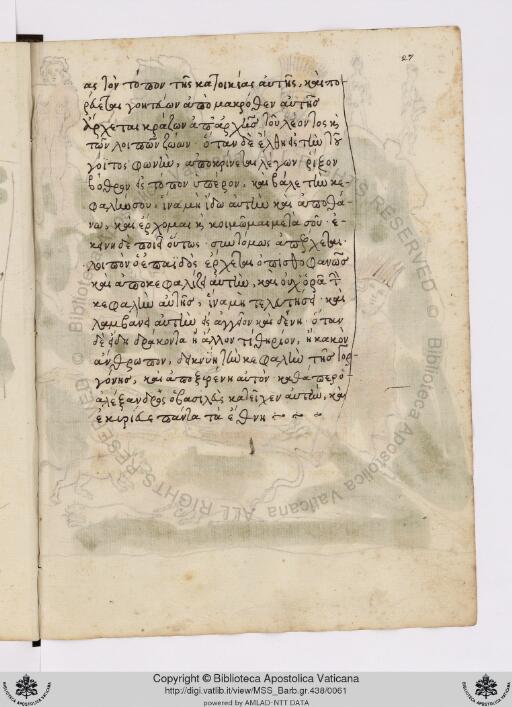 27
ας τὸν τόπον τῆς κατοικίας αὐτῆς, καὶ πο
ρεύεται χοντεύων ἀπο μακρόθεν αὐτῆς
ἄρχεται κράζων ἀπ' ἀρχῆς τοῦ λέοντος κὶ
τῶν λοιπῶν ζώων· ὅταν δὲ ἔλθη εἰς τὴν τοῦ
γοῖτος φωνὴν, ἀποκρίνεται λέγων ὄριξον
βόθρον εἰς τόπον ὕπερον, καὶ βάλε τὴν κε
φαλήν σου· ἵνα μὴ ἴδω αὐτὴν καὶ ἀποθά
νω, καὶ ἔρχομαι κὶ κοιμῶμαι μετὰ σοῦ· ἐ
κεῖνη δὲ ποιεῖ οὕτως· συντόμως ἀπέρχεται
λοιπὸν ὁ ἐπαϊδὸς ἔρχεται ὀπισθοφανῶς
καὶ ἀποκεφαλίζει αὐτὴν, καὶ οὐχ ὁρᾶ τὴ
κεφαλὴν αὐτῆς, ἵνα μὴ τελετήσει· καὶ
λαμβάνει αὐτὴν εἰς ἀγγεῖον καὶ δένη· ὅταν
δὲ ἴδη δράκοντα ἢ ἄλλον τι θηρίον, ἢ κακὸν
ἄνθρωπον, δεικνύη τὴν κεφαλὴν τῆς γορ
γόνης, καὶ ἀποξηρένη αὐτόν· καθάπερ ὁ
ἀλέξανδρος ὁ βασιλεὺς κατεῖχεν αὐτὴν, καὶ
ἐκυρίευε πάντα τὰ ἔθνη
ALL RIGHTS RESERVED © Biblioteca Apostolica Vaticana
Copyright © Biblioteca Apostolica Vaticana
http://digi.vatlib.it/view/MSS_Barb.gr.438/0061
powered by AMLAD-NTT DATA
BIBLIOTECA APOSTOLICA VATICANA
BIBLIOTECA APOSTOLICA VATICANA